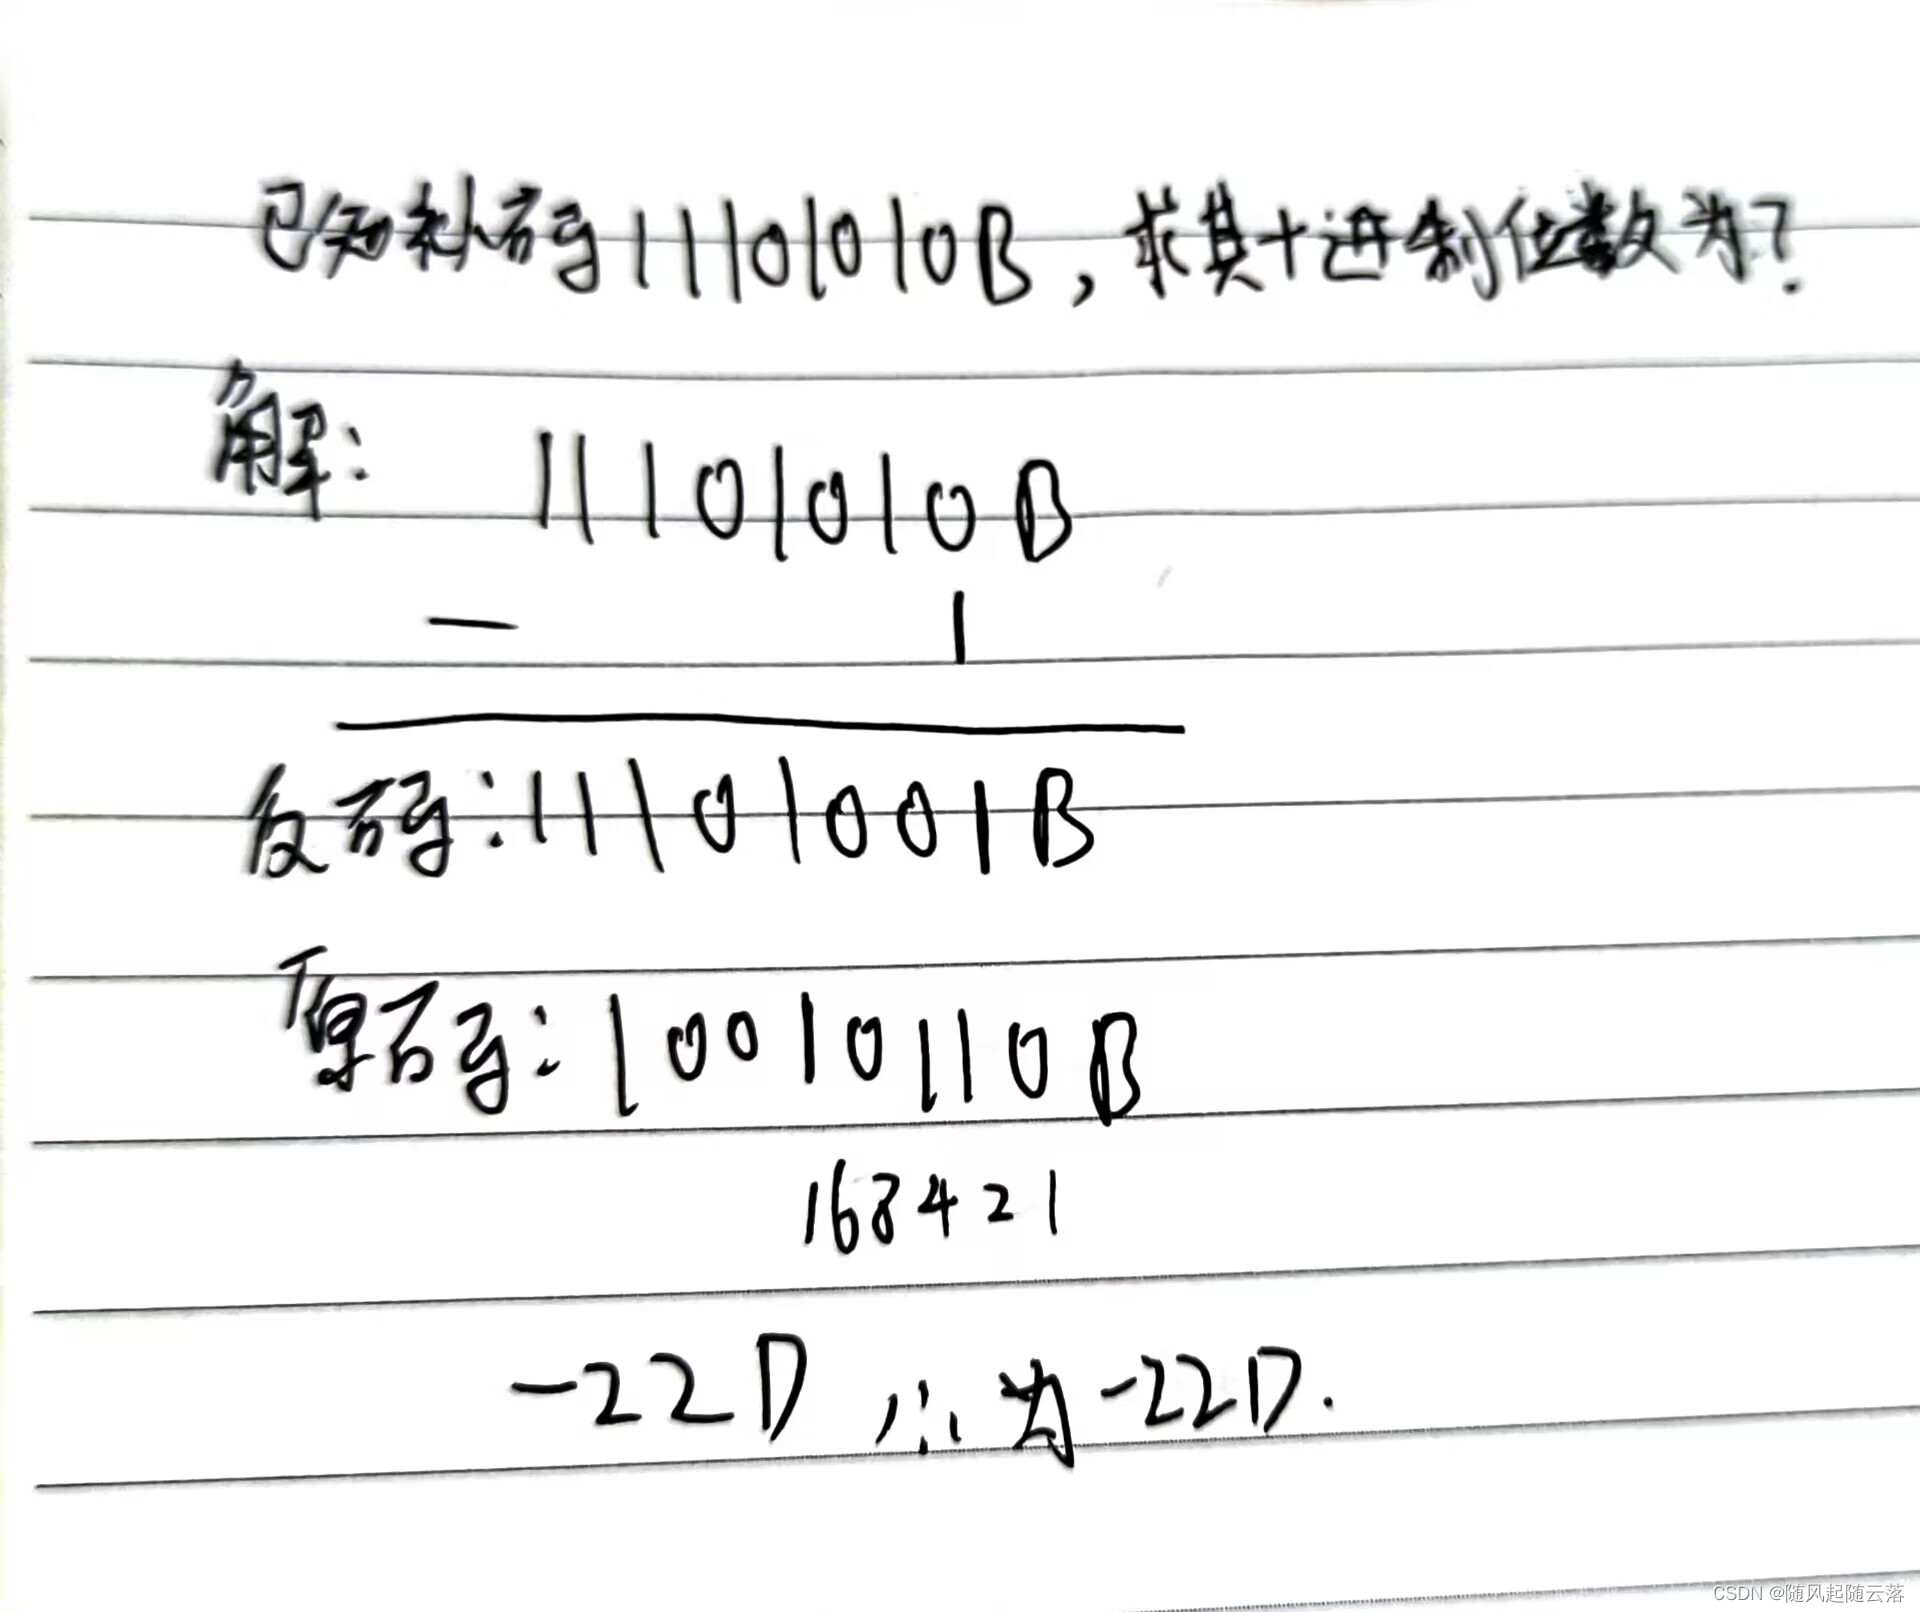 已知补码11101010B，求其十进制位数为？
解：11101010B
－ 1
反码：11101001B
原码：10010110B
168421
－22D，∴为－22D.
CSDN @随风起随云落